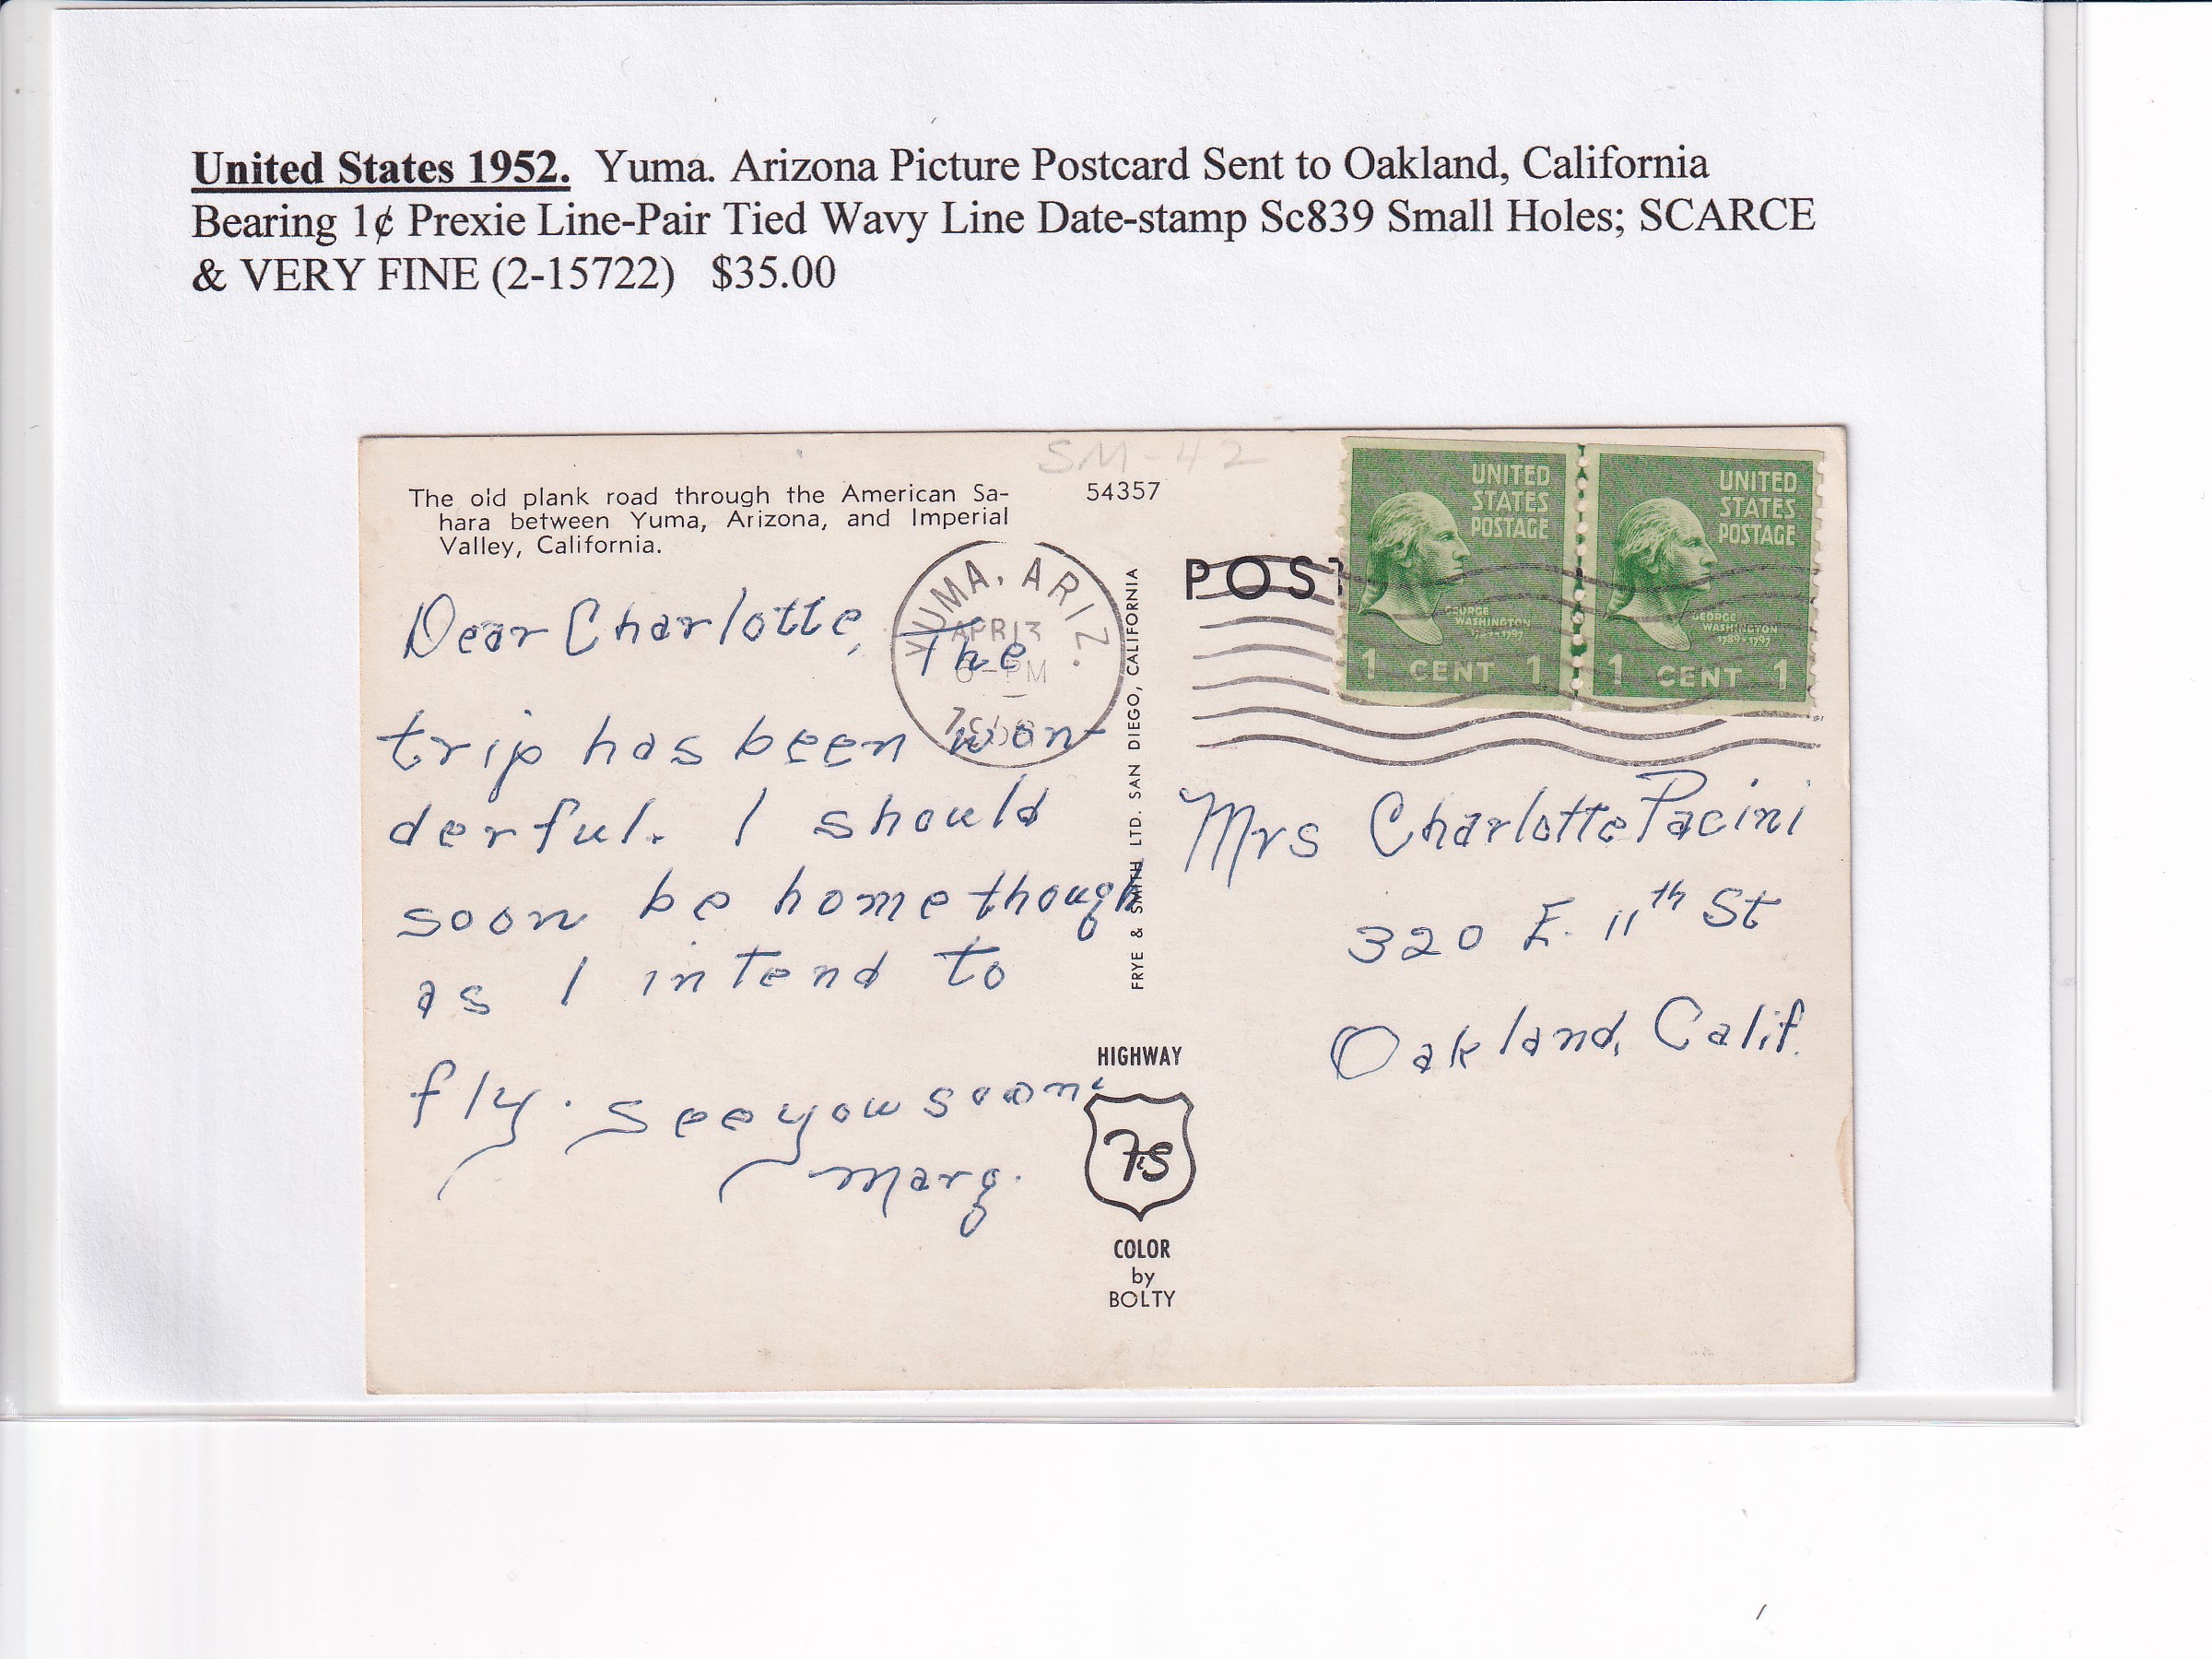 United States 1952. Yuma. Arizona Picture Postcard Sent to Oakland, California
Bearing 1¢ Prexie Line-Pair Tied Wavy Line Date-stamp Sc839 Small Holes; SCARCE
& VERY FINE (2-15722) $35.00
SM-42
The old plank road through the American Sa-
hara between Yuma, Arizona, and Imperial
Valley, California.
54357
YUMA, ARIZ.
APR 13
PM
POST
UNITED
STATES
POSTAGE
GEORGE
WASHINGTON
1789-1797
1 CENT 1
UNITED
STATES
POSTAGE
GEORGE
WASHINGTON
1789-1797
1 CENT 1
Dear Charlotte, The
trip has been won-
derful. I should
soon be home though
as I intend to
fly. See you soon.
Marg.
FRYE & SMITH, LTD. SAN DIEGO, CALIFORNIA
HIGHWAY
FS
COLOR
by
BOLTY
Mrs Charlotte Pacini
320 E. 11th St
Oakland, Calif.